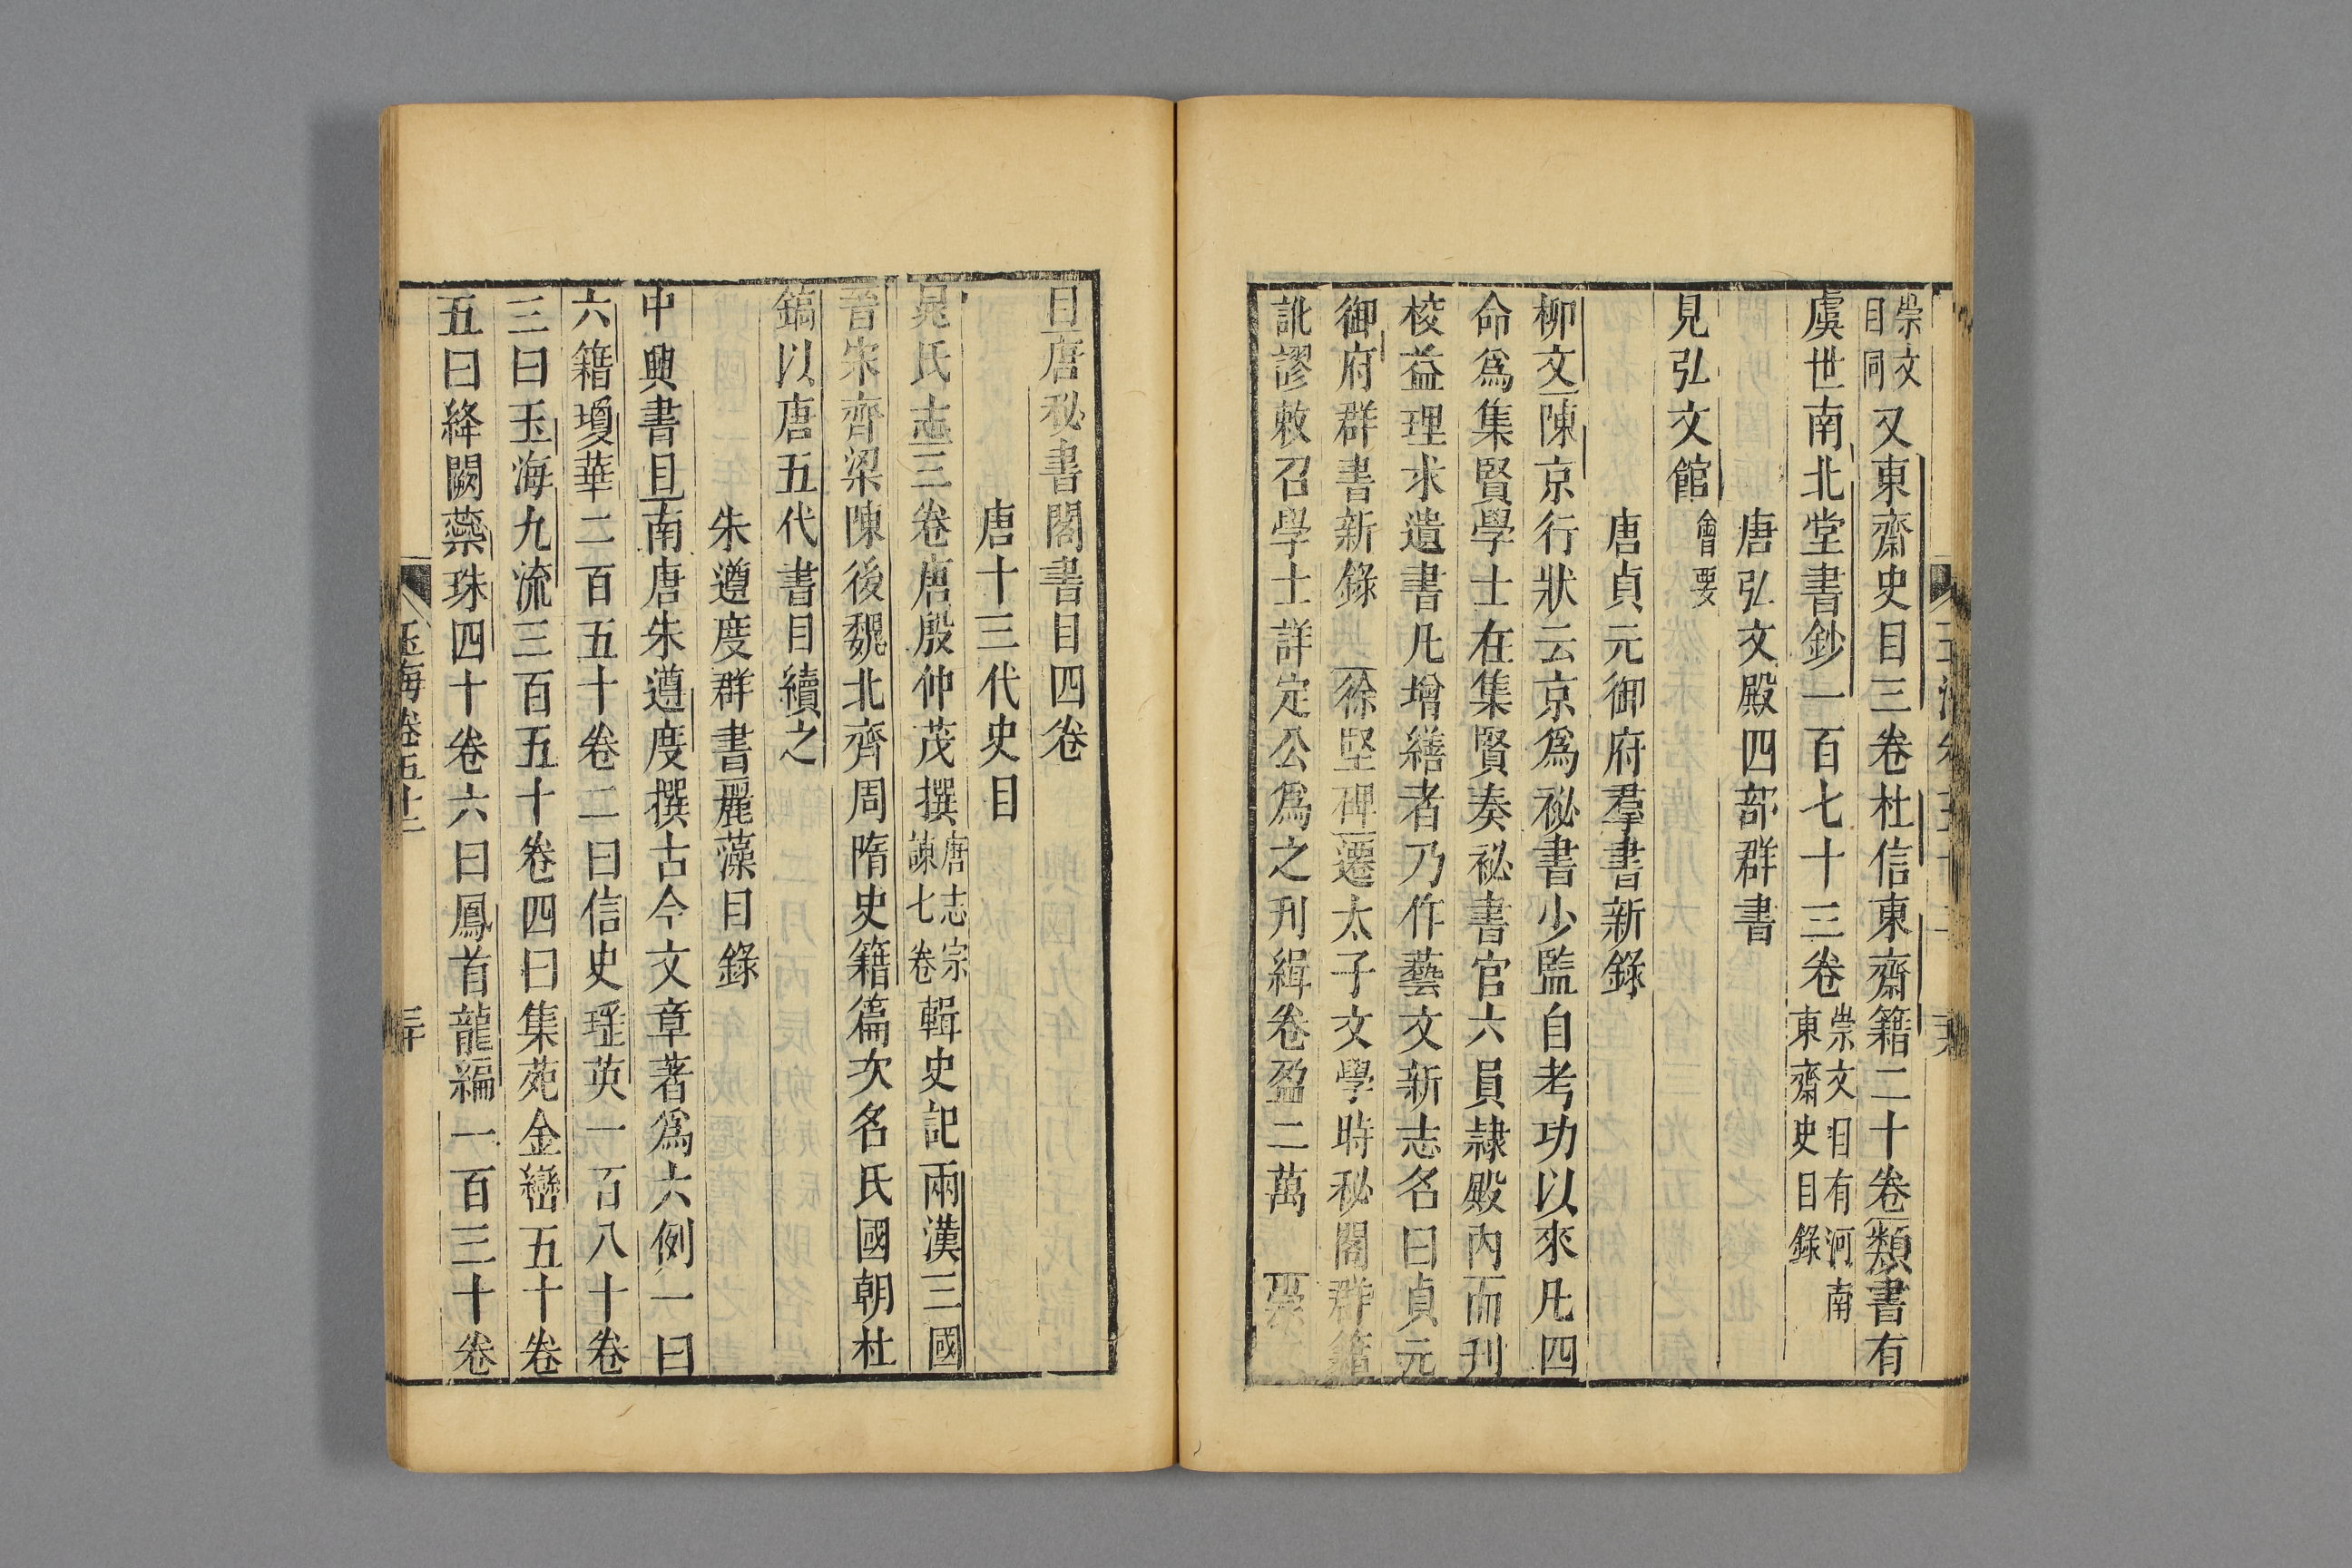 崇文目同又東齋史目三卷杜信東齋籍二十卷類書有
虞世南北堂書鈔一百七十三卷崇文目有河南東齋史目錄
唐弘文殿四部群書
見弘文館會要
唐貞元御府羣書新錄
柳文陳京行狀云京爲秘書少監自考功以來凡四
命爲集賢學士在集賢奏祕書官六員隷殿內而刊
校益理求遺書凡增繕者乃作藝文新志名曰貞元
御府群書新錄 徐堅碑遷太子文學時秘閣群籍
訛謬敕召學士詳定公爲之刋緝卷盈二萬
目唐秘書閣書目四卷
唐十三代史目
晁氏志三卷唐殷仲茂撰唐志宗諫七卷輯史記兩漢三國
晉宋齊梁陳後魏北齊周隋史籍篇次名氏國朝杜
鎬以唐五代書目續之
朱遵度群書麗藻目錄
中興書目南唐朱遵度撰古今文章著爲六例一曰
六籍瓊華二百五十卷二曰信史瑶英一百八十卷
三曰玉海九流三百五十卷四曰集苑金巒五十卷
五曰絳闕蘂珠四十卷六曰鳳首龍編一百三十卷
玉海卷五十二